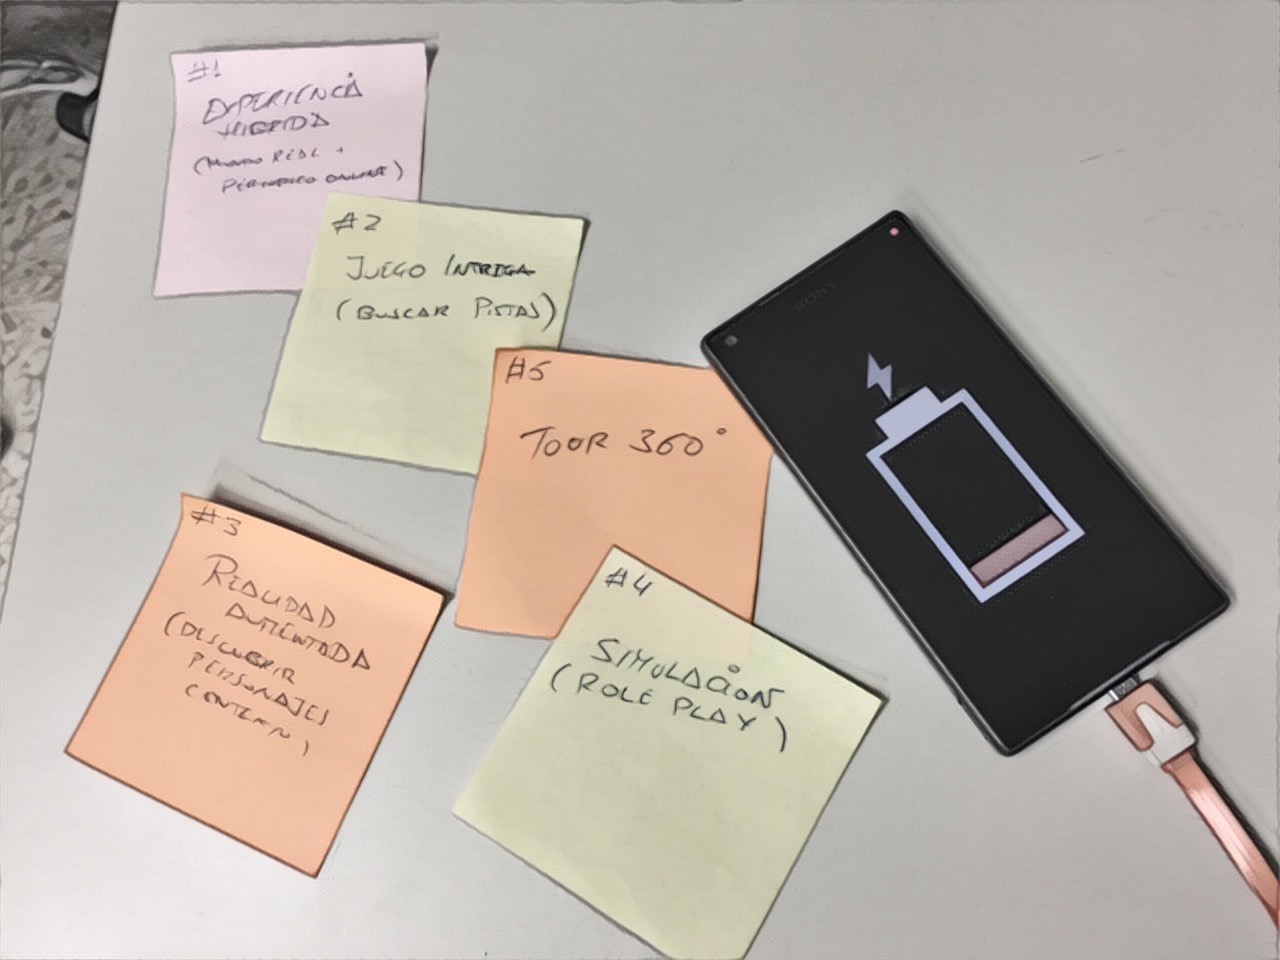 #1
EXPERIENCIA
HIBRIDA
(MUNDO REAL +
PERIODICO ONLINE)
#2
JUEGO INTRIGA
(BUSCAR PISTAS)
#5
TOUR 360°
#3
REALIDAD
AUMENTADA
(DESCUBRIR
PERSONAJES
)
#4
SIMULACIÓN
(ROLE PLAY)
SONY